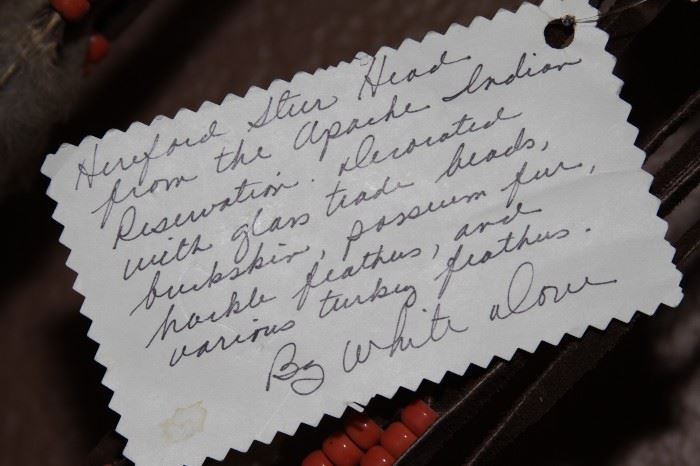 Hereford Steer Head
from the Apache Indian
Reservation. Decorated
with glass trade beads,
buckskin, possum fur,
hackle feathers, and
various turkey feathers.
By White Dove